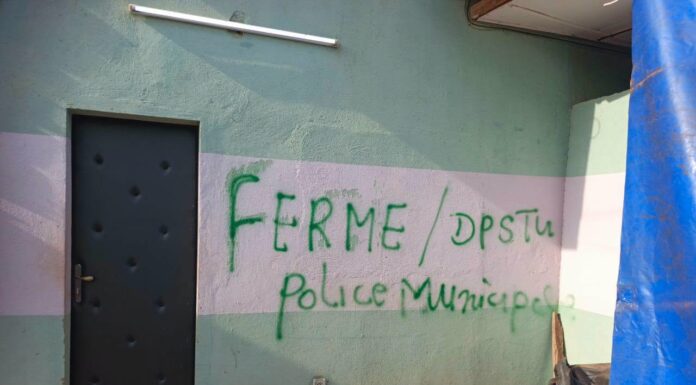 FERME / DPSTU
POLICE MUNICIPALE